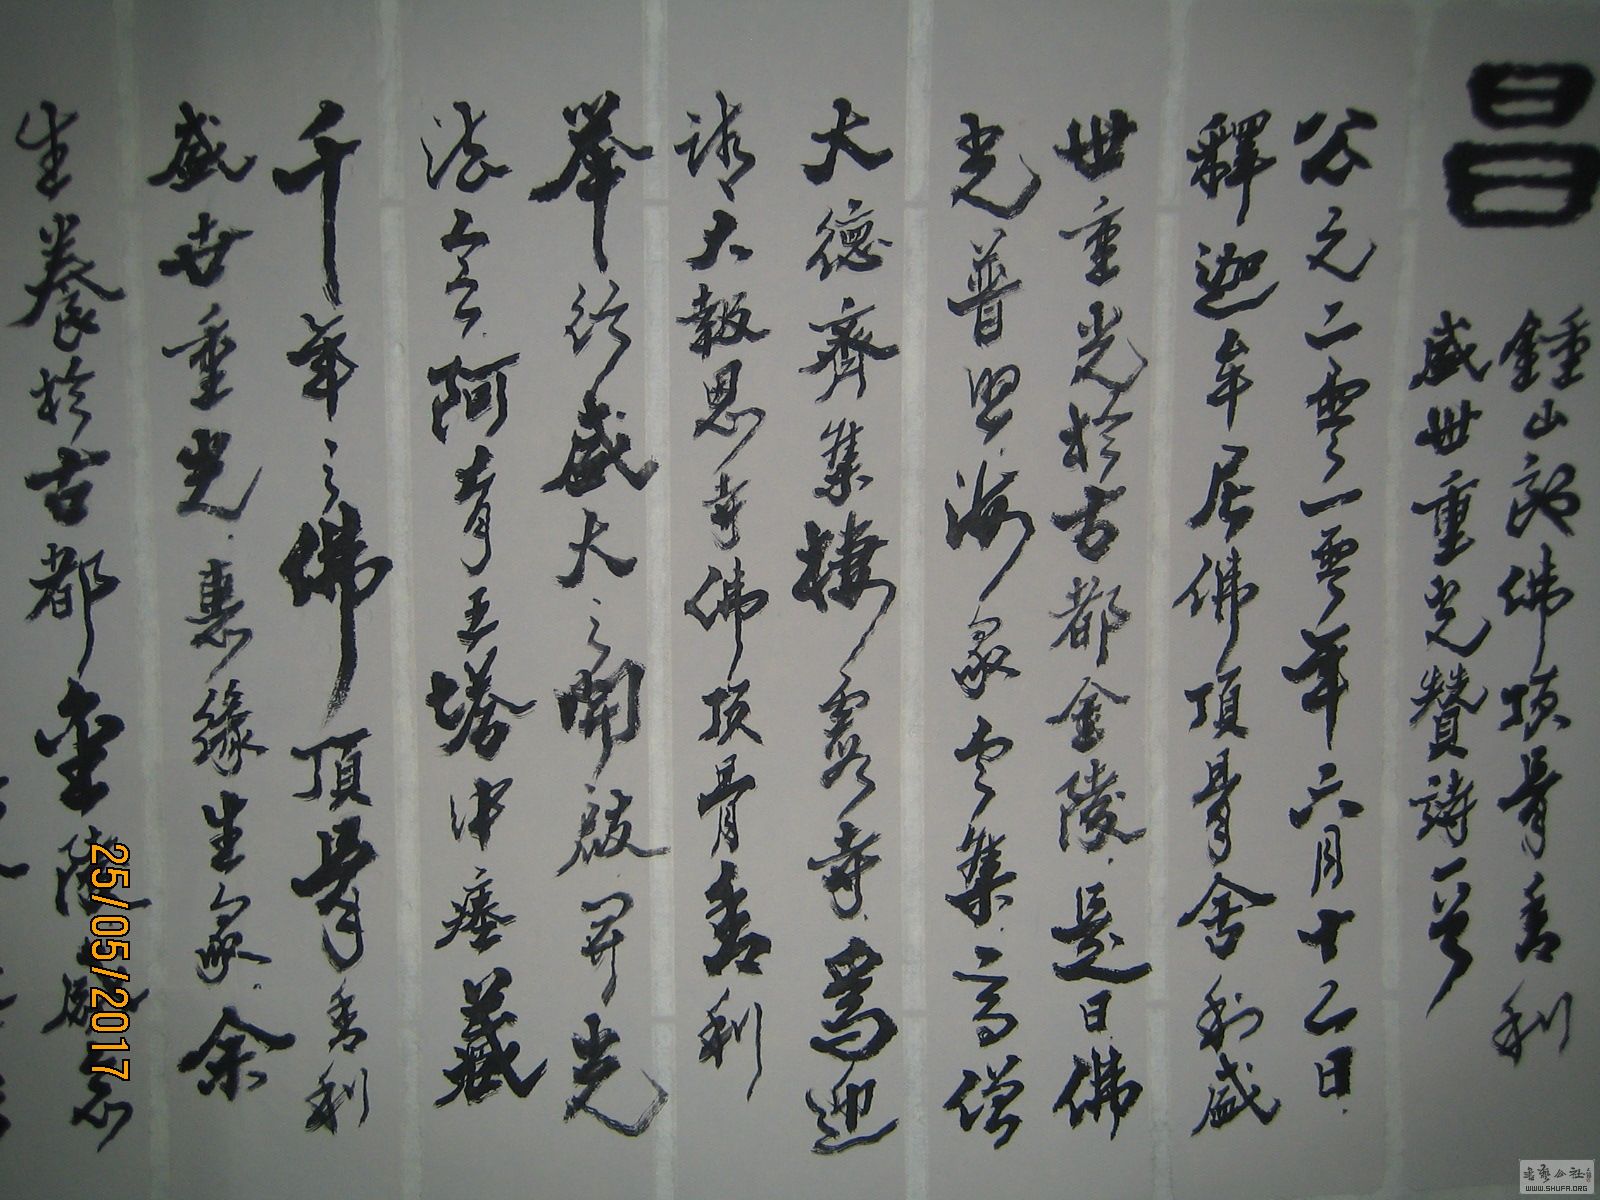 昌
鍾山郎佛頂骨舍利
盛世重光贊詩一首
公元二零一零年六月十二日
釋迦牟尼佛頂骨舍利盛
世重光於古都金陵是日佛
光普照海众雲集高僧
大德齊集棲霞寺為迎
請大報恩寺佛頂骨舍利
舉行盛大之開啟開光
法會阿育王塔中瘞藏
千年之佛頂骨舍利
盛世重光惠緣生众余
生養於古都金陵感念
25/05/2017
書藝公社
WWW.SHUFA.ORG